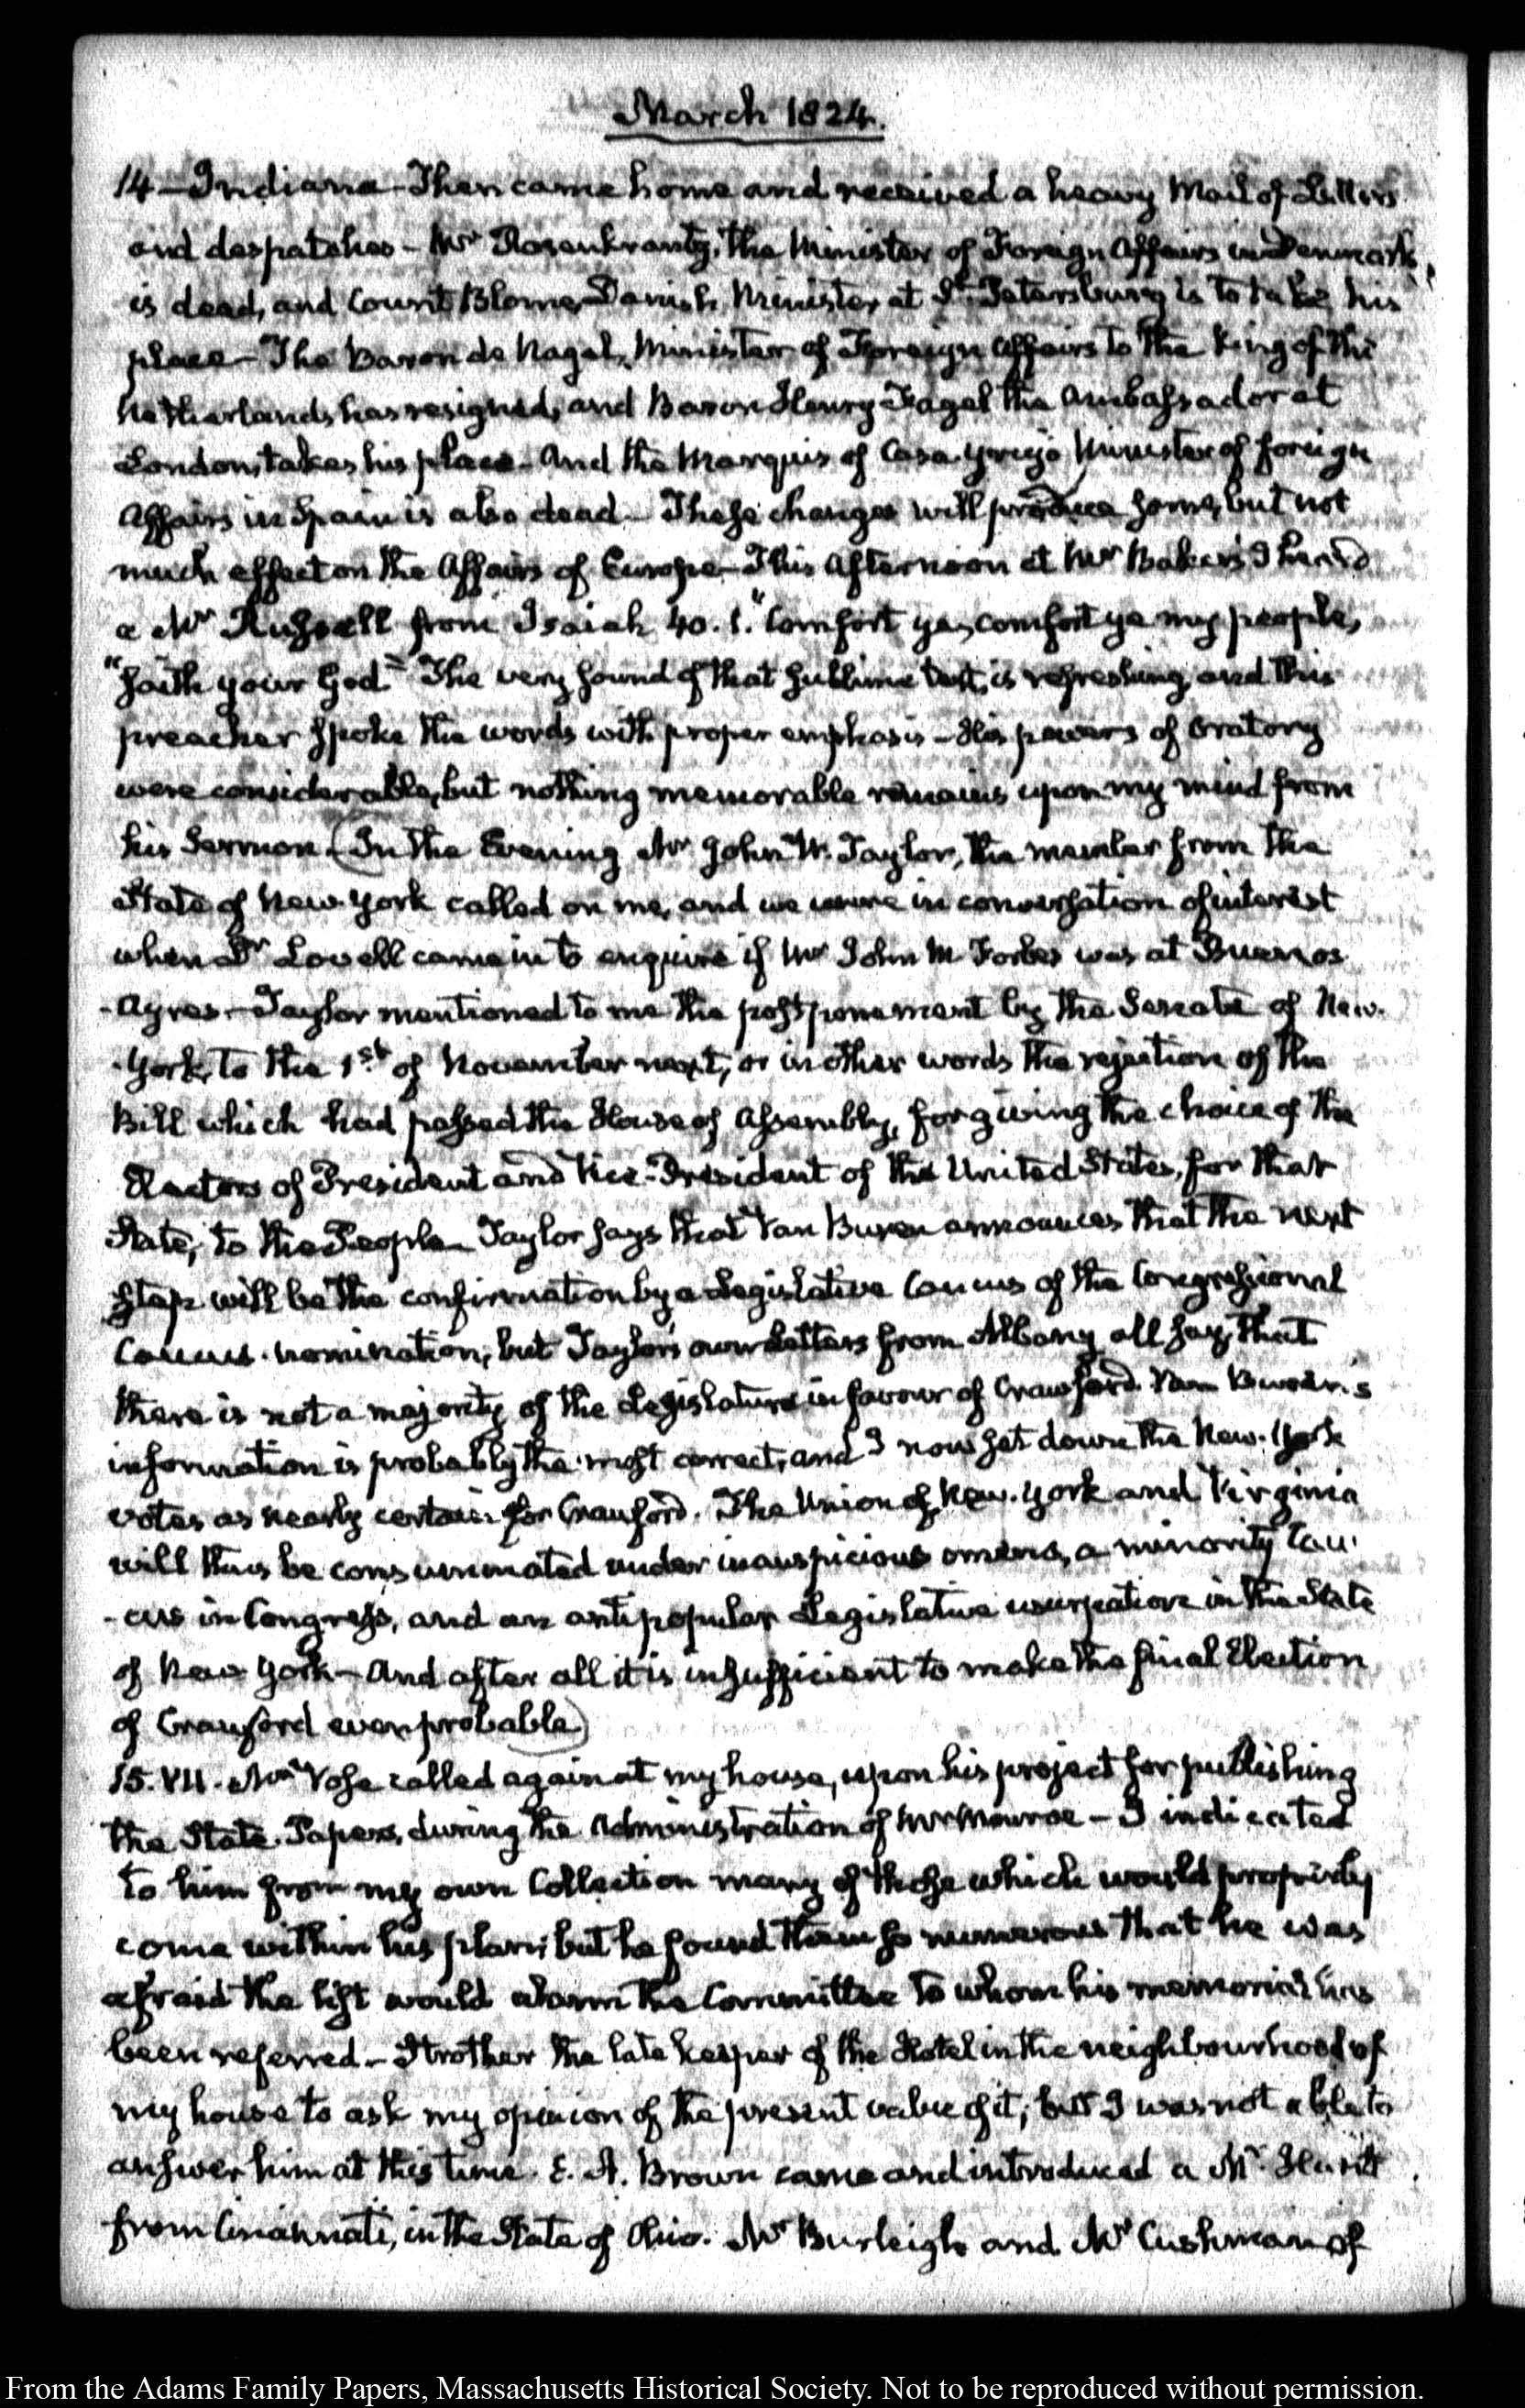 March 1824.
14 – Indiana – Then came home and received a heavy Mail of Letters
and despatches – Mr Rosenkrantz, the Minister of Foreign Affairs in Denmark,
is dead, and Count Blome, Danish Minister at St. Petersburg is to take his
place – The Baron de Nagel, Minister of Foreign Affairs to the King of the
Netherlands, has resigned, and Baron Henry Fagel the Ambassador at
London, takes his place – And the Marquis of Casa-Yrujo Minister of foreign
Affairs in Spain is also dead – These changes will produce some, but not
much effect on the Affairs of Europe – This Afternoon at Mr Baker's I heard
a Mr Russell from Isaiah 40. 1. "Comfort ye, comfort ye my people,
"saith your God." The very sound of that sublime text, is refreshing, and this
preacher spoke the words with proper emphasis – His powers of Oratory
were considerable, but nothing memorable remains upon my mind from
his Sermon. (In the Evening Mr John W. Taylor, the member from the
State of New-York called on me, and we were in conversation of interest
when Dr Lovell came in to enquire if Mr John M Forbes was at Buenos
-Ayres – Taylor mentioned to me the postponement by the Senate of New-
-York, to the 1st of November next, or in other words the rejection of the
Bill which had passed the House of Assembly, for giving the choice of the
Electors of President and Vice-President of the United States, for that
State, to the People – Taylor says that Van Buren announces that the next
step will be the confirmation by a Legislative Caucus of the Congressional
Caucus-nomination, but Taylor's own Letters from Albany all say, that
there is not a majority of the Legislature in favour of Crawford. Van Buren's
information is probably the most correct, and I now set down the New-York
votes as nearly certain for Crawford. The Union of New-York and Virginia
will thus be consummated under inauspicious omens, a minority Cau-
-cus in Congress, and an antipopular Legislative usurpation in the State
of New York – And after all it is insufficient to make the final Election
of Crawford even probable.)
15. VII. Mr Vose called again at my house, upon his project for publishing
the State-Papers, during the Administration of Mr Monroe – I indicated
to him from my own Collection many of those which would properly
come within his plan; but he found them so numerous that he was
afraid the list would alarm the Committee to whom his memorial has
been referred – Strother the late keeper of the Hotel in the neighbourhood of
my house to ask my opinion of the present value of it; but I was not able to
answer him at this time. E. A. Brown came and introduced a Mr Hunt
from Cincinnati, in the State of Ohio. Mr Burleigh and Mr Cushman of
From the Adams Family Papers, Massachusetts Historical Society. Not to be reproduced without permission.